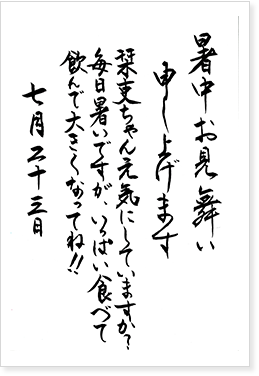 暑中お見舞い
申し上げます
栞吏ちゃん元気にしていますか?
毎日暑いですが、いっぱい食べて
飲んで大きくなってね!!
七月二十三日